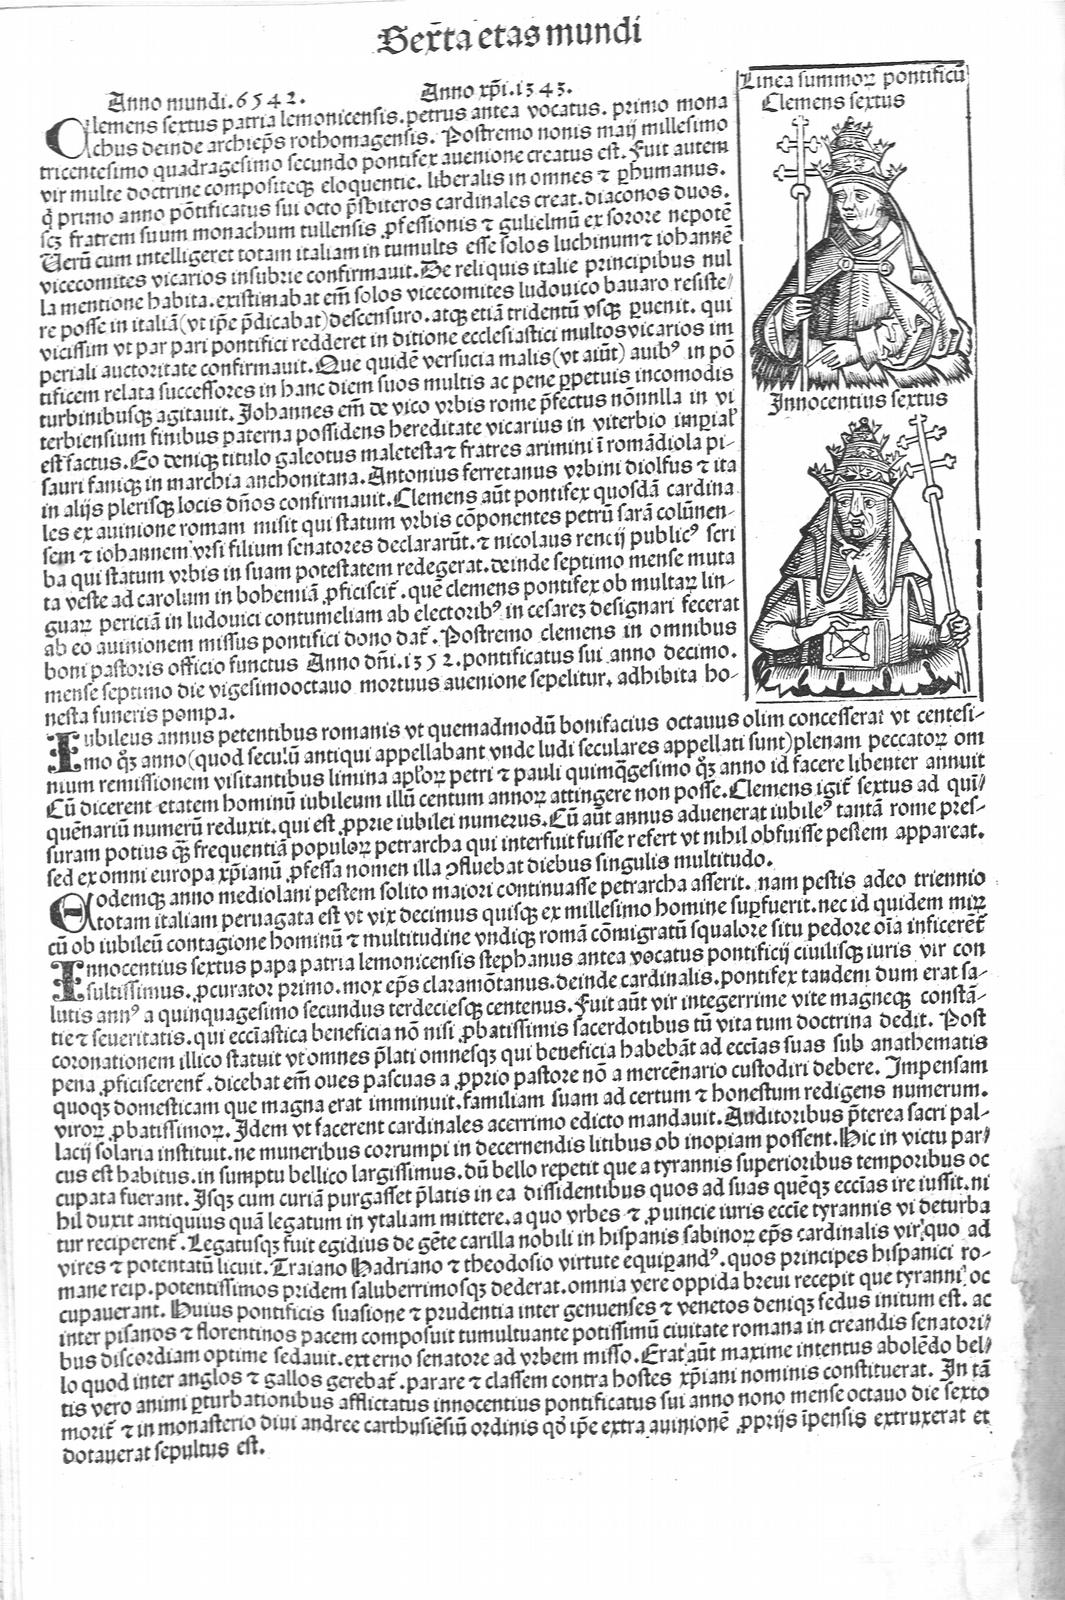 Sexta etas mundi
Anno mundi.6542. Anno xp̄i.1343.
Linea summoꝝ pontificū
Clemens sextus
Innocentius sextus
Clemens sextus patria lemonicensis.petrus antea vocatus. primo mona
chus deinde archiep̄s rothomagensis. Postremo nonis maij millesimo
tricentesimo quadragesimo secundo pontifex auenione creatus est. Fuit autem
vir multe doctrine compositeqꝫ eloquentie. liberalis in omnes ⁊ ꝑhumanus.
q̄ primo anno pōtificatus sui octo p̄sbiteros cardinales creat.diaconos duos.
scꝫ fratrem suum monachum tullensis ꝓfessionis ⁊ gulielmū ex sorore nepotē
Uerū cum intelligeret totam italiam in tumults esse solos luchinum ⁊ iohannē
vicecomites vicarios insubrie confirmauit.De reliquis italie principibus nul
la mentione habita.existimabat em̄ solos vicecomites ludouico bauaro resiste/
re posse in italiā(vt ip̄e p̄dicabat)descensuro.atqꝫ etiā tridentū vsqꝫ ꝑuenit. qui
vicissim vt par pari pontifici redderet in ditione ecclesiastici multos vicarios im
periali auctoritate confirmauit.Que quidē versucia malis(vt aiūt) auibꝰ in pō
tificem relata successores in hanc diem suos multis ac pene ꝑpetuis incomodis
turbinibusqꝫ agitauit. Johannes em̄ de vico vrbis rome p̄fectus nōnnlla in vi
terbiensium finibus paterna possidens hereditate vicarius in viterbio imꝑial̓
est factus.Eo deniqꝫ titulo galeotus maletesta ⁊ fratres arimini ī romādiola pi-
sauri faniqꝫ in marchia anchonitana. Antonius ferretanus vrbini diolfus ⁊ ita
in alijs plerisqꝫ locis dn̄os confirmauit.Clemens aūt pontifex quosdā cardina
les ex auinione romam misit qui statum vrbis cōponentes petrū farā colūnen-
sem ⁊ iohannem vrsi filium senatores declararūt. ⁊ nicolaus rencij publicꝰ scri
ba qui statum vrbis in suam potestatem redegerat.deinde septimo mense muta
ta veste ad carolum in bohemiā ꝓficiscit̄. quē clemens pontifex ob multaꝝ lin-
guaꝝ periciā in ludouici contumeliam ab electoribꝰ in cesareꝫ designari fecerat
ab eo auinionem missus pontifici dono dat̄. Postremo clemens in omnibus
boni pastoris officio functus Anno dn̄i.1352.pontificatus sui anno decimo.
mense septimo die vigesimooctauo mortuus auenione sepelitur. adhibita ho-
nesta funeris pompa.
Iubileus annus petentibus romanis vt quemadmodū bonifacius octauus olim concesserat vt centesi-
mo qꝫ anno(quod secu̓ū antiqui appellabant vnde ludi seculares appellati sunt)plenam peccatoꝝ om
nium remissionem visitantibus limina ap̄loꝝ petri ⁊ pauli quimq̄gesimo qꝫ anno id facere libenter annuit
Cū dicerent etatem hominū iubileum illū centum annoꝝ attingere non posse.Clemens igit̄ sextus ad quī/
quēnariū numerū reduxit.qui est ꝓprie iubilei numerus.Cū aūt annus aduenerat iubileꝰ tantā rome pres-
suram potius q̄ꝫ frequentiā populoꝝ petrarcha qui interfuit fuisse refert vt nihil obfuisse pestem appareat.
sed ex omni europa xp̄ianū ꝓfessa nomen illa ꝯfluebat diebus singulis multitudo.
Eodemqꝫ anno mediolani pestem solito maiori continuasse petrarcha asserit. nam pestis adeo triennio
totam italiam peruagata est vt vix decimus quisqꝫ ex millesimo homine suꝑfuerit.nec id quidem miꝝ
cū ob iubileū contagione hominū ⁊ multitudine vndiqꝫ romā cōmigratū squalore situ pedore oīa inficerēt̄
Innocentius sextus papa patria lemonicensis stephanus antea vocatus pontificij ciuilisqꝫ iuris vir con
sultissimus. ꝓcurator primo.mox ep̄s claramōtanus.deinde cardinalis.pontifex tandem dum erat sa-
lutis annꝰ a quinquagesimo secundus terdeciesqꝫ centenus.Fuit aūt vir integerrime vite magneqꝫ constā-
tie ⁊ seueritatis.qui ecciastica beneficia nō nisi ꝓbatissimis sacerdotibus tū vita tum doctrina dedit. Post
coronationem illico statuit vt omnes p̄lati omnesqꝫ qui beneficia habebāt ad eccias suas sub anathematis
pena ꝓficiscerent̄.dicebat em̄ oues pascuas a ꝓprio pastore nō a mercēnario custodiri debere. Impensam
quoqꝫ domesticam que magna erat imminuit.familiam suam ad certum ⁊ honestum redigens numerum.
viroꝝ ꝓbatissimoꝝ. Idem vt facerent cardinales acerrimo edicto mandauit.Auditoribus p̄terea sacri pal-
lacij solaria instituit.ne muneribus corrumpi in decernendis litibus ob inopiam possent.Hic in victu par/
cus est habitus.in sumptu bellico largissimus.dū bello repetit que a tyrannis superioribus temporibus oc
cupata fuerant. Isqꝫ cum curiā purgasset p̄latis in ea dissidentibus quos ad suas quēqꝫ eccias ire iussit.ni
hil duxit antiquius quā legatum in ytaliam mittere.a quo vrbes ⁊ ꝓuincie iuris eccie tyrannis vi deturba
tur reciperent̄.Legatusqꝫ fuit egidius de gēte carilla nobili in hispanis sabinoꝝ ep̄s cardinalis vir̓quo ad
vires ⁊ potentatū licuit. Traiano Hadriano ⁊ theodosio virtute equiꝑandꝰ.quos principes hispanici ro-
mane reip.potentissimos pridem saluberrimosqꝫ dederat.omnia vere oppida breui recepit que tyranni̓ oc
cupauerant. Huius pontificis suasione ⁊ prudentia inter genuenses ⁊ venetos deniqꝫ fedus initum est. ac
inter pisanos ⁊ florentinos pacem composuit tumultuante potissimū ciuitate romana in creandis senatori/
bus discordiam optime sedauit.externo senatore ad vrbem misso.Erat aūt maxime intentus abolēdo bel/
lo quod inter anglos ⁊ gallos gerebat̄.parare ⁊ classem contra hostes xp̄iani nominis constituerat. In tā
tis vero animi ꝑturbationibus afflictatus innocentius pontificatus sui anno nono mense octauo die sexto
morit̄ ⁊ in monasterio diui andree carthusiēsiū ordinis qd̓ ip̄e extra auinionē ꝓprijs īpensis extruxerat et
dotauerat sepultus est.